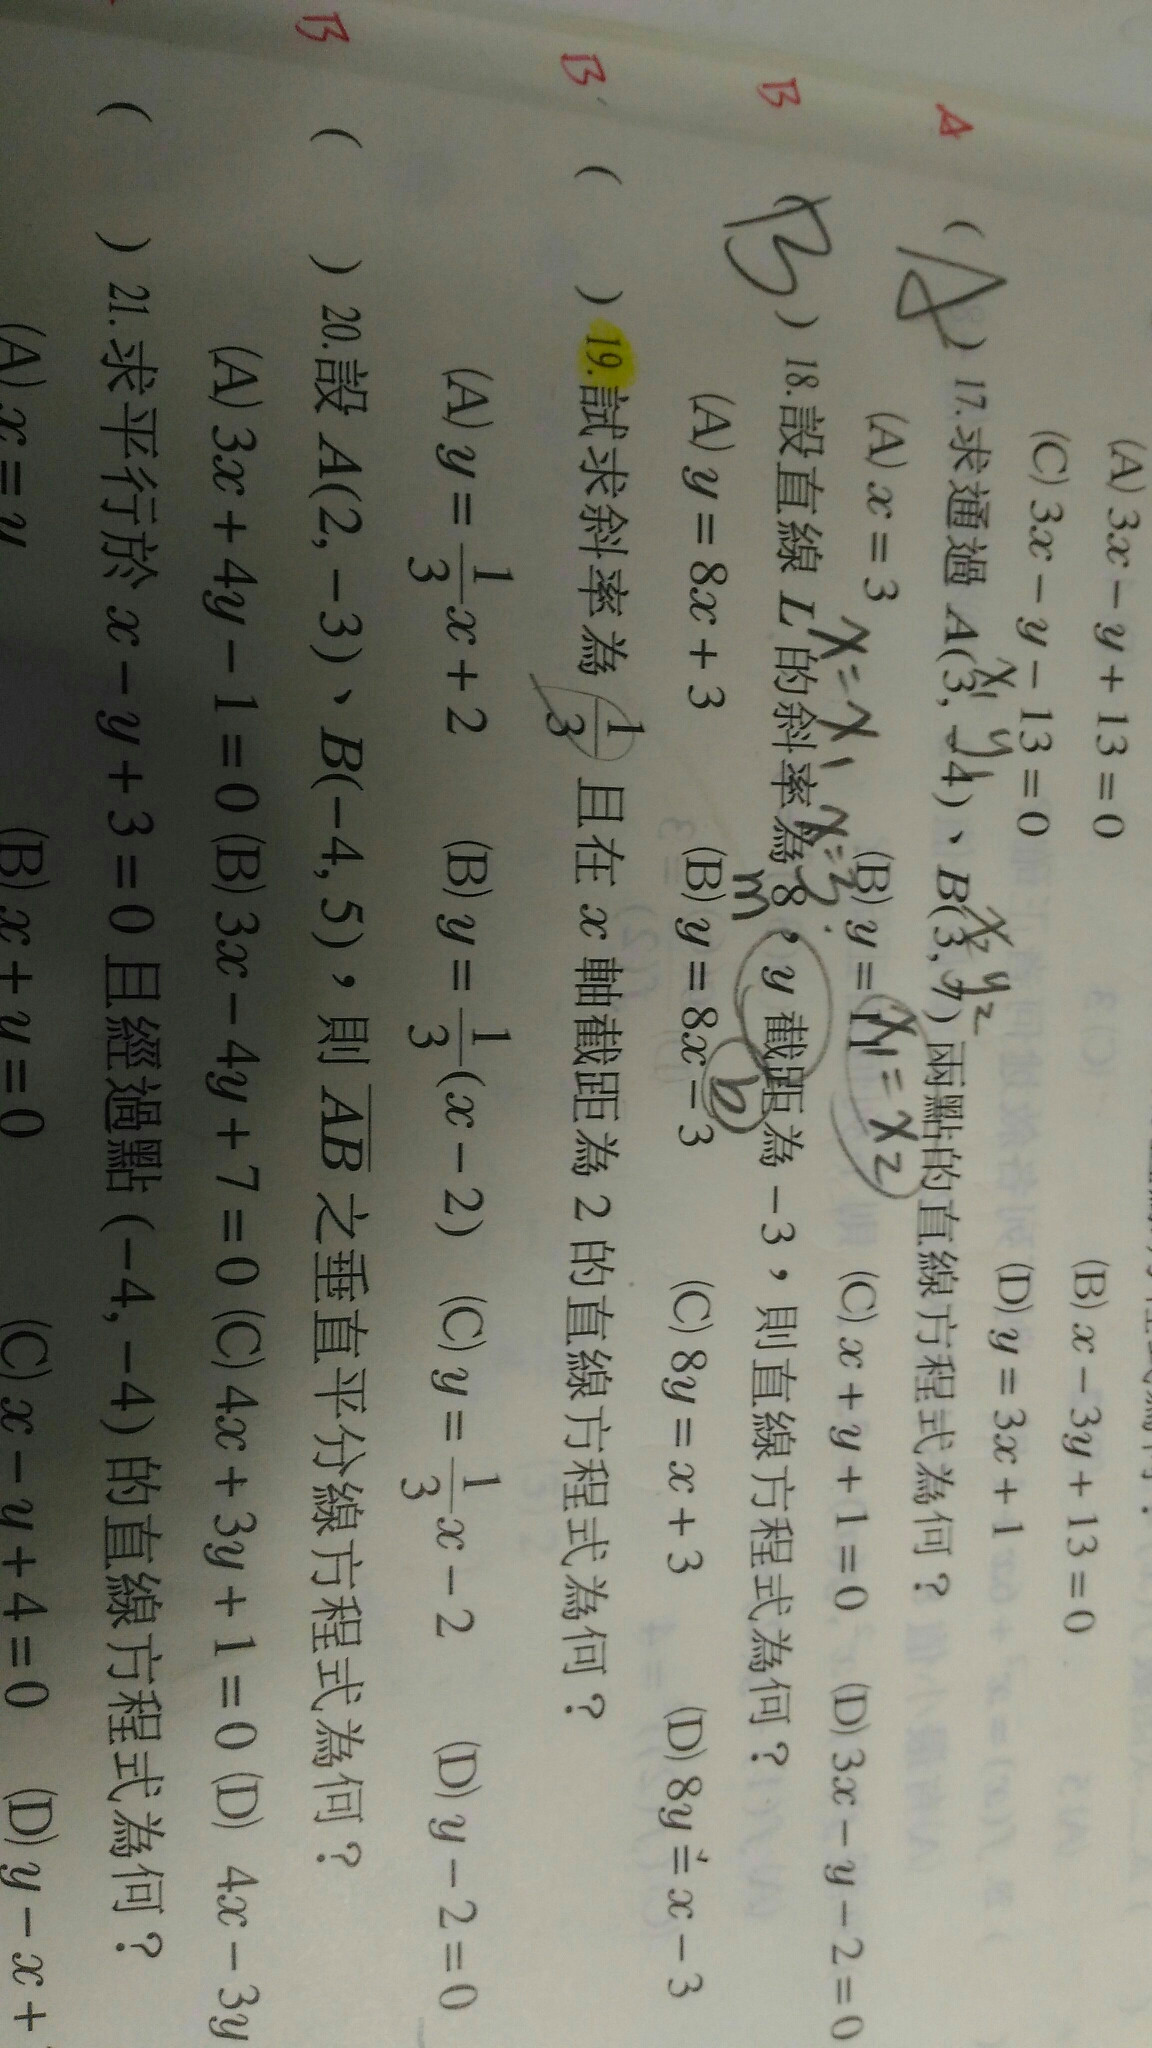 (A) 3x − y + 13 = 0 (B) x − 3y + 13 = 0
(C) 3x − y − 13 = 0 (D) y = 3x + 1
A ( A ) 17. 求通過 A(3, −4)、B(3, 7) 兩點的直線方程式為何?
x₁ y₁ x₂ y₂
(A) x = 3 (B) y = (C) x + y + 1 = 0 (D) 3x − y − 2 = 0
x = x₁ x = 3 x₁ = x₂
B ( B ) 18. 設直線 L 的斜率為 8,y 截距為 −3,則直線方程式為何?
m b
(A) y = 8x + 3 (B) y = 8x − 3 (C) 8y = x + 3 (D) 8y = x − 3
B ( ) 19. 試求斜率為 1/3 且在 x 軸截距為 2 的直線方程式為何?
(A) y = 1/3 x + 2 (B) y = 1/3 (x − 2) (C) y = 1/3 x − 2 (D) y − 2 = 0
B ( ) 20. 設 A(2, −3)、B(−4, 5),則 AB 之垂直平分線方程式為何?
(A) 3x + 4y − 1 = 0 (B) 3x − 4y + 7 = 0 (C) 4x + 3y + 1 = 0 (D) 4x − 3y
( ) 21. 求平行於 x − y + 3 = 0 且經過點 (−4, −4) 的直線方程式為何?
(A) x = y (B) x + y = 0 (C) x − y + 4 = 0 (D) y − x +